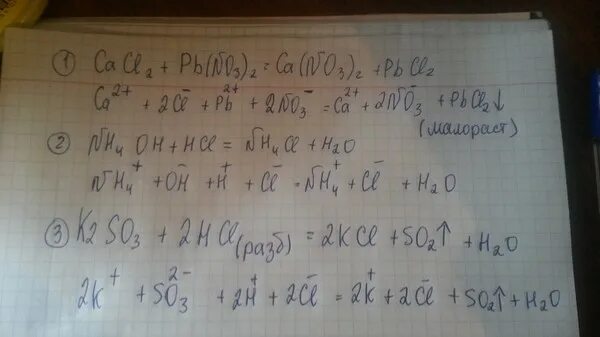 ① CaCl₂ + Pb(NO₃)₂ = Ca(NO₃)₂ + PbCl₂
Ca²⁺ + 2Cl⁻ + Pb²⁺ + 2NO₃⁻ = Ca²⁺ + 2NO₃⁻ + PbCl₂↓
(малораст)
② NH₄OH + HCl = NH₄Cl + H₂O
NH₄⁺ + OH⁻ + H⁺ + Cl⁻ = NH₄⁺ + Cl⁻ + H₂O
③ K₂SO₃ + 2HCl (разб) = 2KCl + SO₂↑ + H₂O
2K⁺ + SO₃²⁻ + 2H⁺ + 2Cl⁻ = 2K⁺ + 2Cl⁻ + SO₂↑ + H₂O